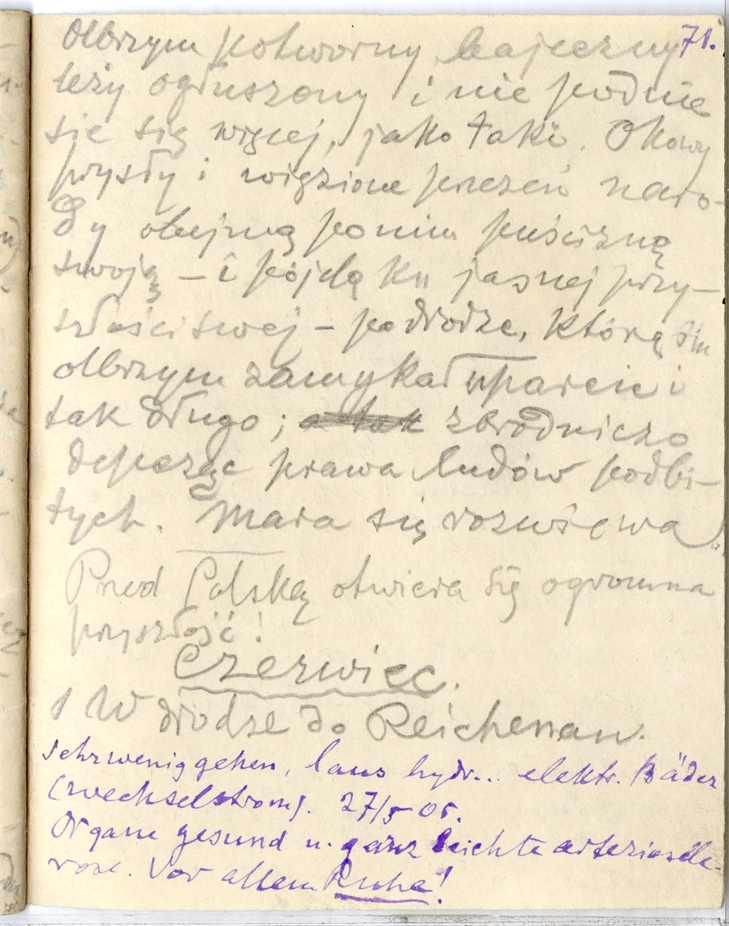 71.
Olbrzym potworny bajeczny
leży ogłuszony i nie podnie
sie się więcej, jako taki. Okowy
prysły i więzione przezeń naro-
dy obejmą po nim puściznę
swoją – i pójdą ku jasnej przy-
szłości swej – po drodze, którą im
olbrzym zamykał uparcie i
tak długo; zbrodniczo
depcząc prawa ludów podbi-
tych. Mara się rozwiewa
Przed Polską otwiera się ogromna
przyszłość!
Czerwiec.
1 W drodze do Reichenau.
Sehr wenig gehen, hydr.. elektr. Bäder
(wechselstrom). 27/5 05.
Organe gesund u. ganz leichte arterioskle-
rose. Vor allem Ruhe!